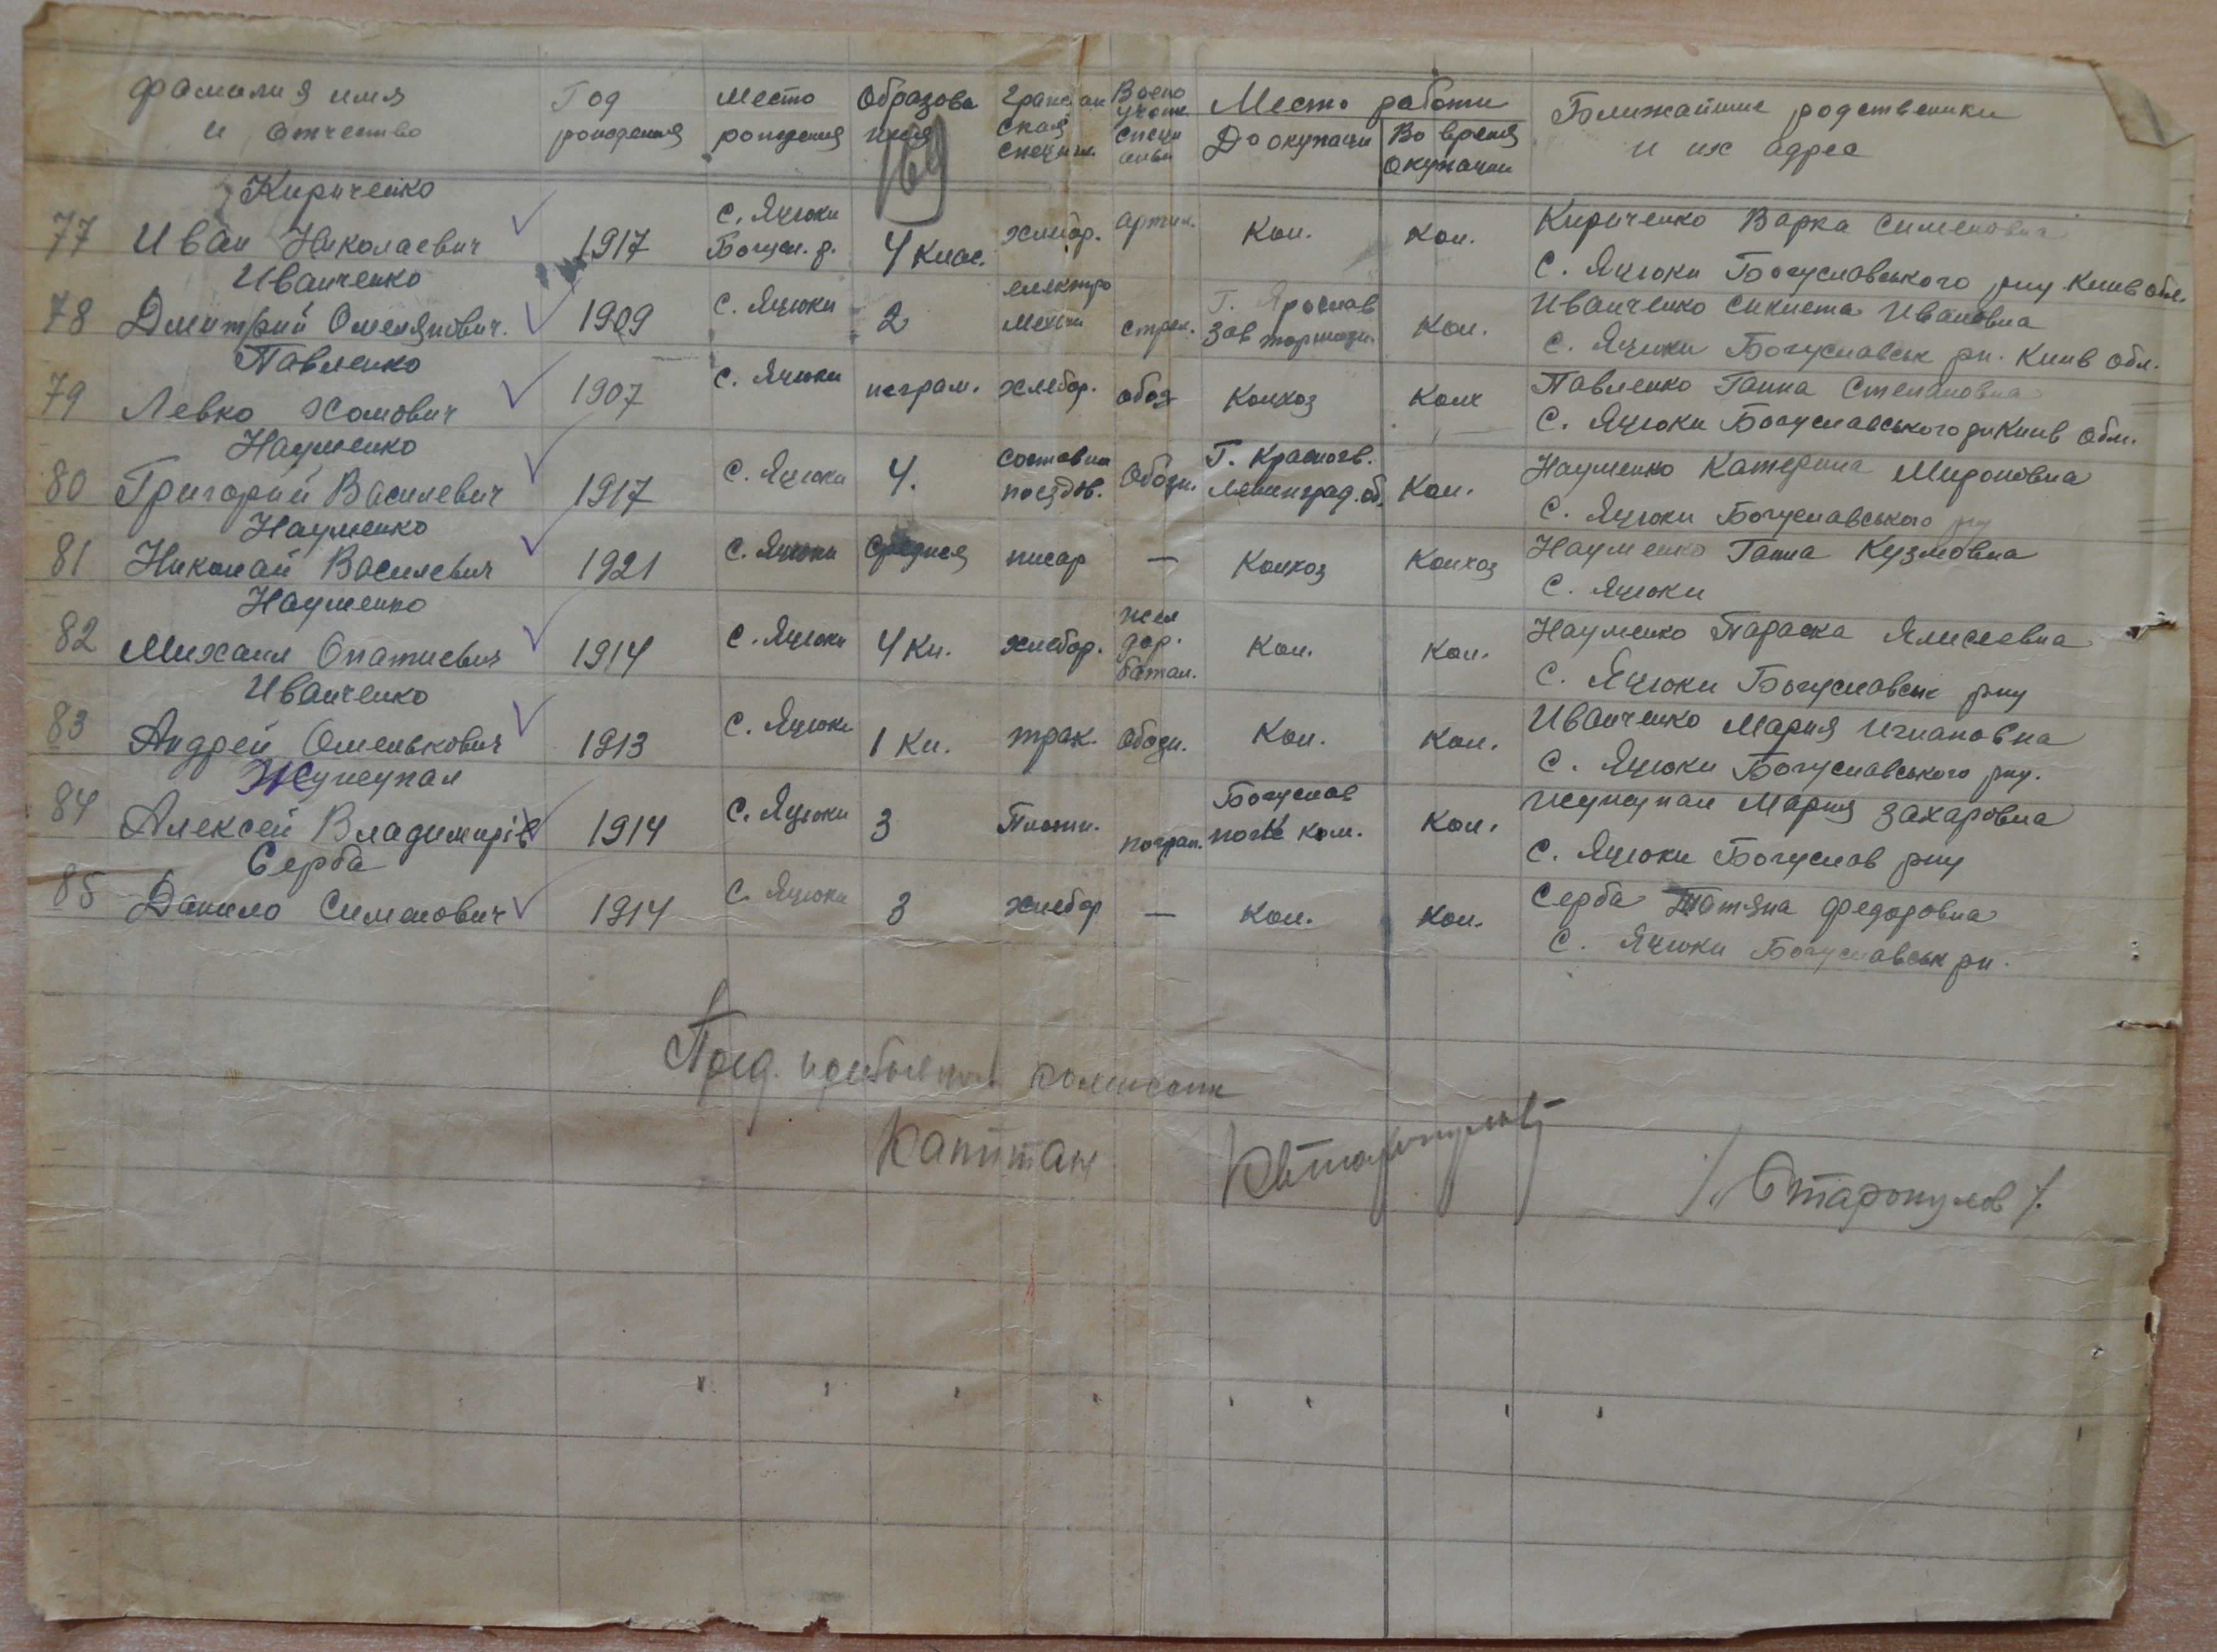 Фамилия имя и отчество Год рождения Место рождения Образова ния Граждан ская специал. Военно учетн специ альн Место работи До окупации Во время окупации Ближайшие родственики и их адрес
169
77 Кириченко Иван Николаевич 1917 С. Яцюки Богусл. р. 4 клас. хлебор. артил. Кол. Кол. Кириченко Варка Сименовна С. Яцюки Богуславського р-ну Киив обл.
78 Иванченко Дмитрий Омелянович. 1909 С. Яцюки 2 електро механ стрел. Г. Ярослав Зав тормозн. Кол. Иванченко Сиклета Ивановна С. Яцюки Богуславськ рн. Киив обл.
79 Павленко Левко Хомович 1907 С. Яцюки неграм. хлебор. обоз Колхоз Колх Павленко Ганна Степановна С. Яцюки Богуславського рн Киив обл.
80 Науменко Григорий Василевич 1917 С. Яцюки 4. составит поездов. Обозн. Г. Красногв. Ленинград. об. Кол. Науменко Катерина Мироновна С. Яцюки Богуславського рну
81 Науменко Николай Василевич 1921 С. Яцюки Средняя писар — Колхоз Колхоз Науменко Ганна Кузмовна С. Яцюки
82 Науменко Михаил Опатиевич 1914 С. Яцюки 4 Кл. хлебор. жел дор. батал. Кол. Кол. Науменко Параска Ялисеевна С. Яцюки Богуславськ рну
83 Иванченко Андрей Омелькович 1913 С. Яцюки 1 Кл. трак. Обозн. Кол. Кол. Иванченко Мария Игнановна С. Яцюки Богуславського рну.
84 Жупупал Алексей Владимирів 1914 С. Яцюки 3 Плотн. погран. Богуслав ком. Кол. Мария Захаровна С. Яцюки Богуслав рну
85 Серба Данило Сименович 1914 С. Яцюки 3 хлебор — Кол. Кол. Серба Татяна Федоровна С. Яцюки Богуславськ рн.
Пред. комиссии
Капитан /Старокулов/.